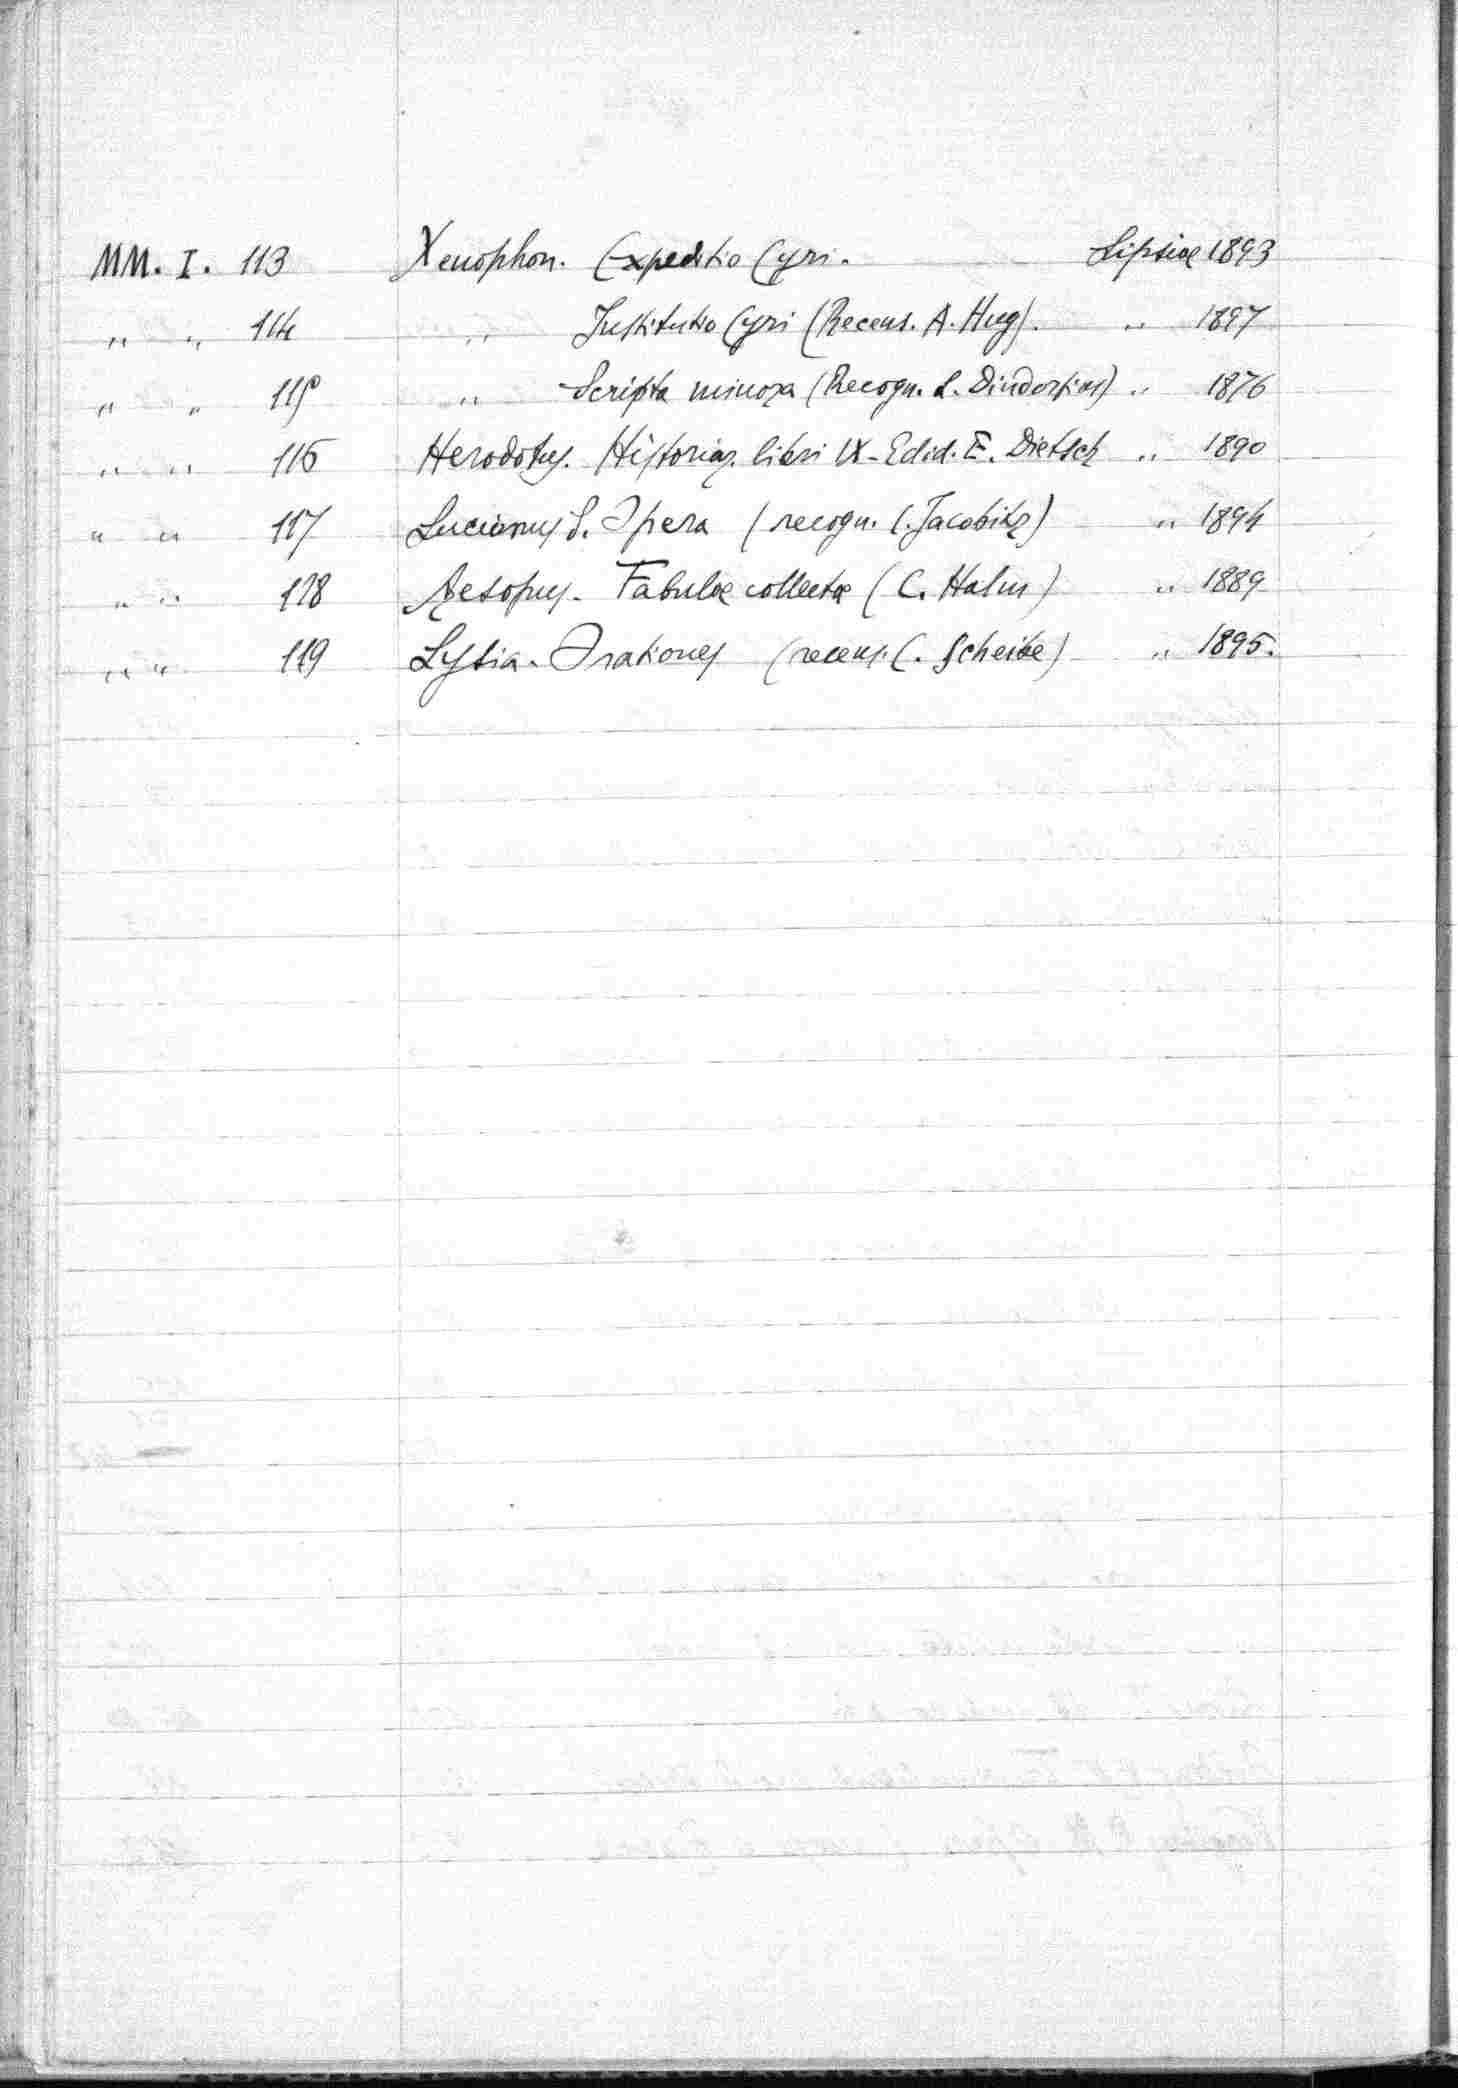 MM. I. 113 Xenophon. Expeditio Cyri. Lipsiae 1893
" " 114 " Institutio Cyri (Recens. A. Hug). " 1897
" " 115 " Scripta minora (Recogn. L. Dindorfius) " 1876
" " 116 Herodotus. Historiar. libri IX - Edid. E. Dietsch " 1890
" " 117 Lucianus S. Opera (recogn. C. Jacobitz) " 1894
" " 118 Aesopus. Fabulae collectae (C. Halm) " 1889
" " 119 Lysia. Orationes (recens. C. Scheibe) " 1895.